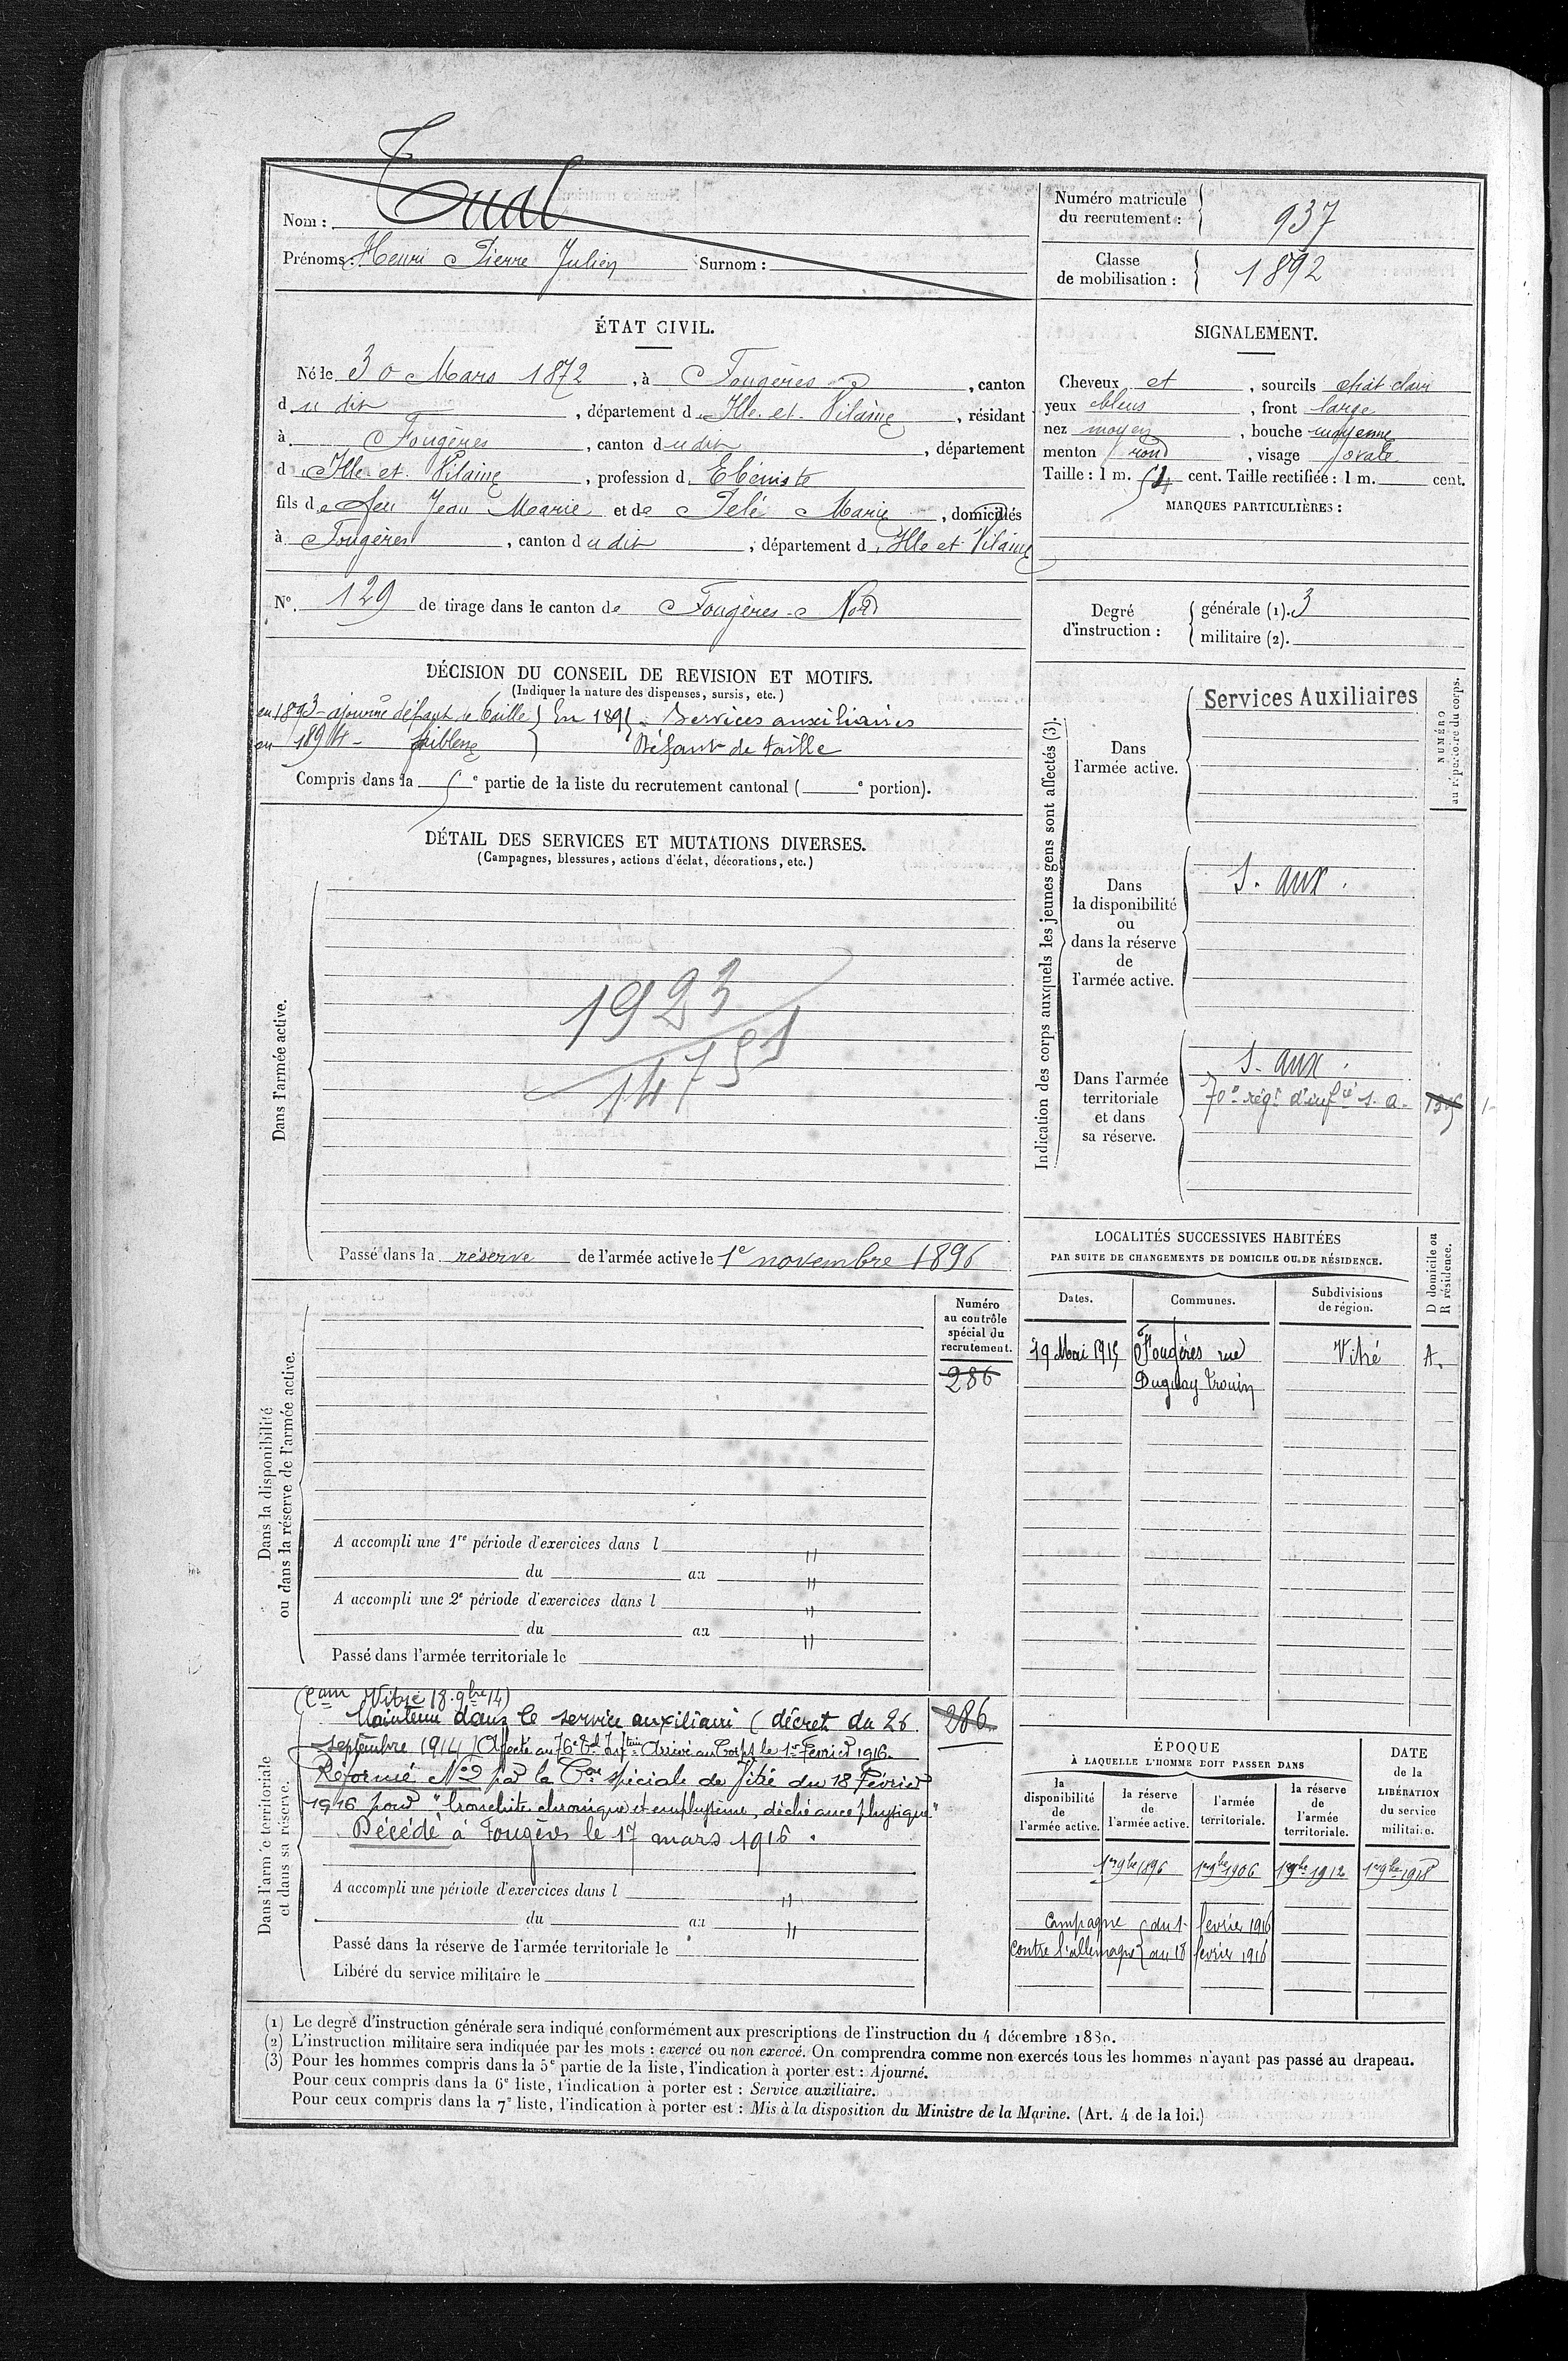 Nom : Tual
Prénoms : Henri Pierre Julien Surnom :
Numéro matricule du recrutement : 937
Classe de mobilisation : 1892
ÉTAT CIVIL.
Né le 30 Mars 1872, à Fougères, canton
dudit, département d'Ille-et-Vilaine, résidant
à Fougères, canton dudit, département
d'Ille et Vilaine, profession d'Ebéniste
fils de feu Jean Marie et de Pelé Marie, domiciliés
à Fougères, canton dudit, département d'Ille et Vilaine
No. 129 de tirage dans le canton de Fougères-Nord
SIGNALEMENT.
Cheveux et, sourcils chât-clair
yeux bleus, front large
nez moyen, bouche moyenne
menton rond, visage ovale
Taille : 1 m. 54 cent. Taille rectifiée : 1 m. cent.
MARQUES PARTICULIÈRES :
Degré d'instruction :
générale (1). 3
militaire (2).
DÉCISION DU CONSEIL DE REVISION ET MOTIFS.
(Indiquer la nature des dispenses, sursis, etc.)
en 1893 - ajourné défaut de taille } En 1895. Services auxiliaires
en 1894 - faiblesse } Défaut de taille
Compris dans la 5e partie de la liste du recrutement cantonal ( e portion).
DÉTAIL DES SERVICES ET MUTATIONS DIVERSES.
(Campagnes, blessures, actions d'éclat, décorations, etc.)
Dans l'armée active.
1923
14751
Passé dans la réserve de l'armée active le 1e novembre 1896
Indication des corps auxquels les jeunes gens sont affectés (3).
NUMÉRO au répertoire du corps.
Dans l'armée active.
Services Auxiliaires
Dans la disponibilité ou dans la réserve de l'armée active.
S. aux.
Dans l'armée territoriale et dans sa réserve.
S. aux.
70e régt d'infie s. a.
LOCALITÉS SUCCESSIVES HABITÉES
PAR SUITE DE CHANGEMENTS DE DOMICILE OU DE RÉSIDENCE.
D domicile ou R résidence.
Dates. Communes. Subdivisions de région.
19 Mai 1915 Fougères rue Vitré
Duguay Trouin
Dans la disponibilité ou dans la réserve de l'armée active.
Numéro au contrôle spécial du recrutement.
286
A accompli une 1re période d'exercices dans l "
du au "
A accompli une 2e période d'exercices dans l "
du au "
Passé dans l'armée territoriale le
Dans l'armée territoriale et dans sa réserve.
(Cam Vitré 18.9bre 14)
Maintenu dans le service auxiliaire (décret du 26
septembre 1914) Affecté au 76e Rt Inf terie Arrivé au Corps le 1er Février 1916.
Réformé No 2 par la Con spéciale de Vitré du 18 Février
1916 pour "bronchite chronique et emphysème, déchéance physique"
Décédé à Fougères le 17 mars 1916.
286
A accompli une période d'exercices dans l "
du au "
Passé dans la réserve de l'armée territoriale le
Libéré du service militaire le
ÉPOQUE
À LAQUELLE L'HOMME DOIT PASSER DANS
la disponibilité de l'armée active. la réserve de l'armée active. l'armée territoriale. la réserve de l'armée territoriale.
DATE de la LIBÉRATION du service militaire.
1er 9bre 1896 1er 9bre 1906 1er 9bre 1912 1er 9bre 1918
Campagne { du 1er février 1916
contre l'allemagne { au 18 février 1916
(1) Le degré d'instruction générale sera indiqué conformément aux prescriptions de l'instruction du 4 décembre 1889.
(2) L'instruction militaire sera indiquée par les mots : exercé ou non exercé. On comprendra comme non exercés tous les hommes n'ayant pas passé au drapeau.
(3) Pour les hommes compris dans la 5e partie de la liste, l'indication à porter est : Ajourné.
Pour ceux compris dans la 6e liste, l'indication à porter est : Service auxiliaire.
Pour ceux compris dans la 7e liste, l'indication à porter est : Mis à la disposition du Ministre de la Marine. (Art. 4 de la loi.)